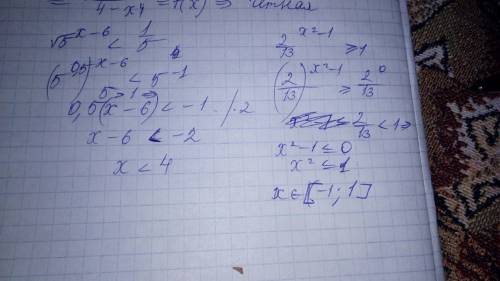 = 4-x4 = f(x) ⇒ чётная
√5^(x-6) < 1/5
(5^0,5)^(x-6) < 5^-1
5>1 ⇒
0,5(x-6) < -1 /·2
x-6 < -2
x < 4
2/13^(x²-1) ≥ 1
(2/13)^(x²-1) ≥ 2/13^0
2/13 < 1 ⇒
x²-1 ≤ 0
x² ≤ 1
x ∈ [-1; 1]